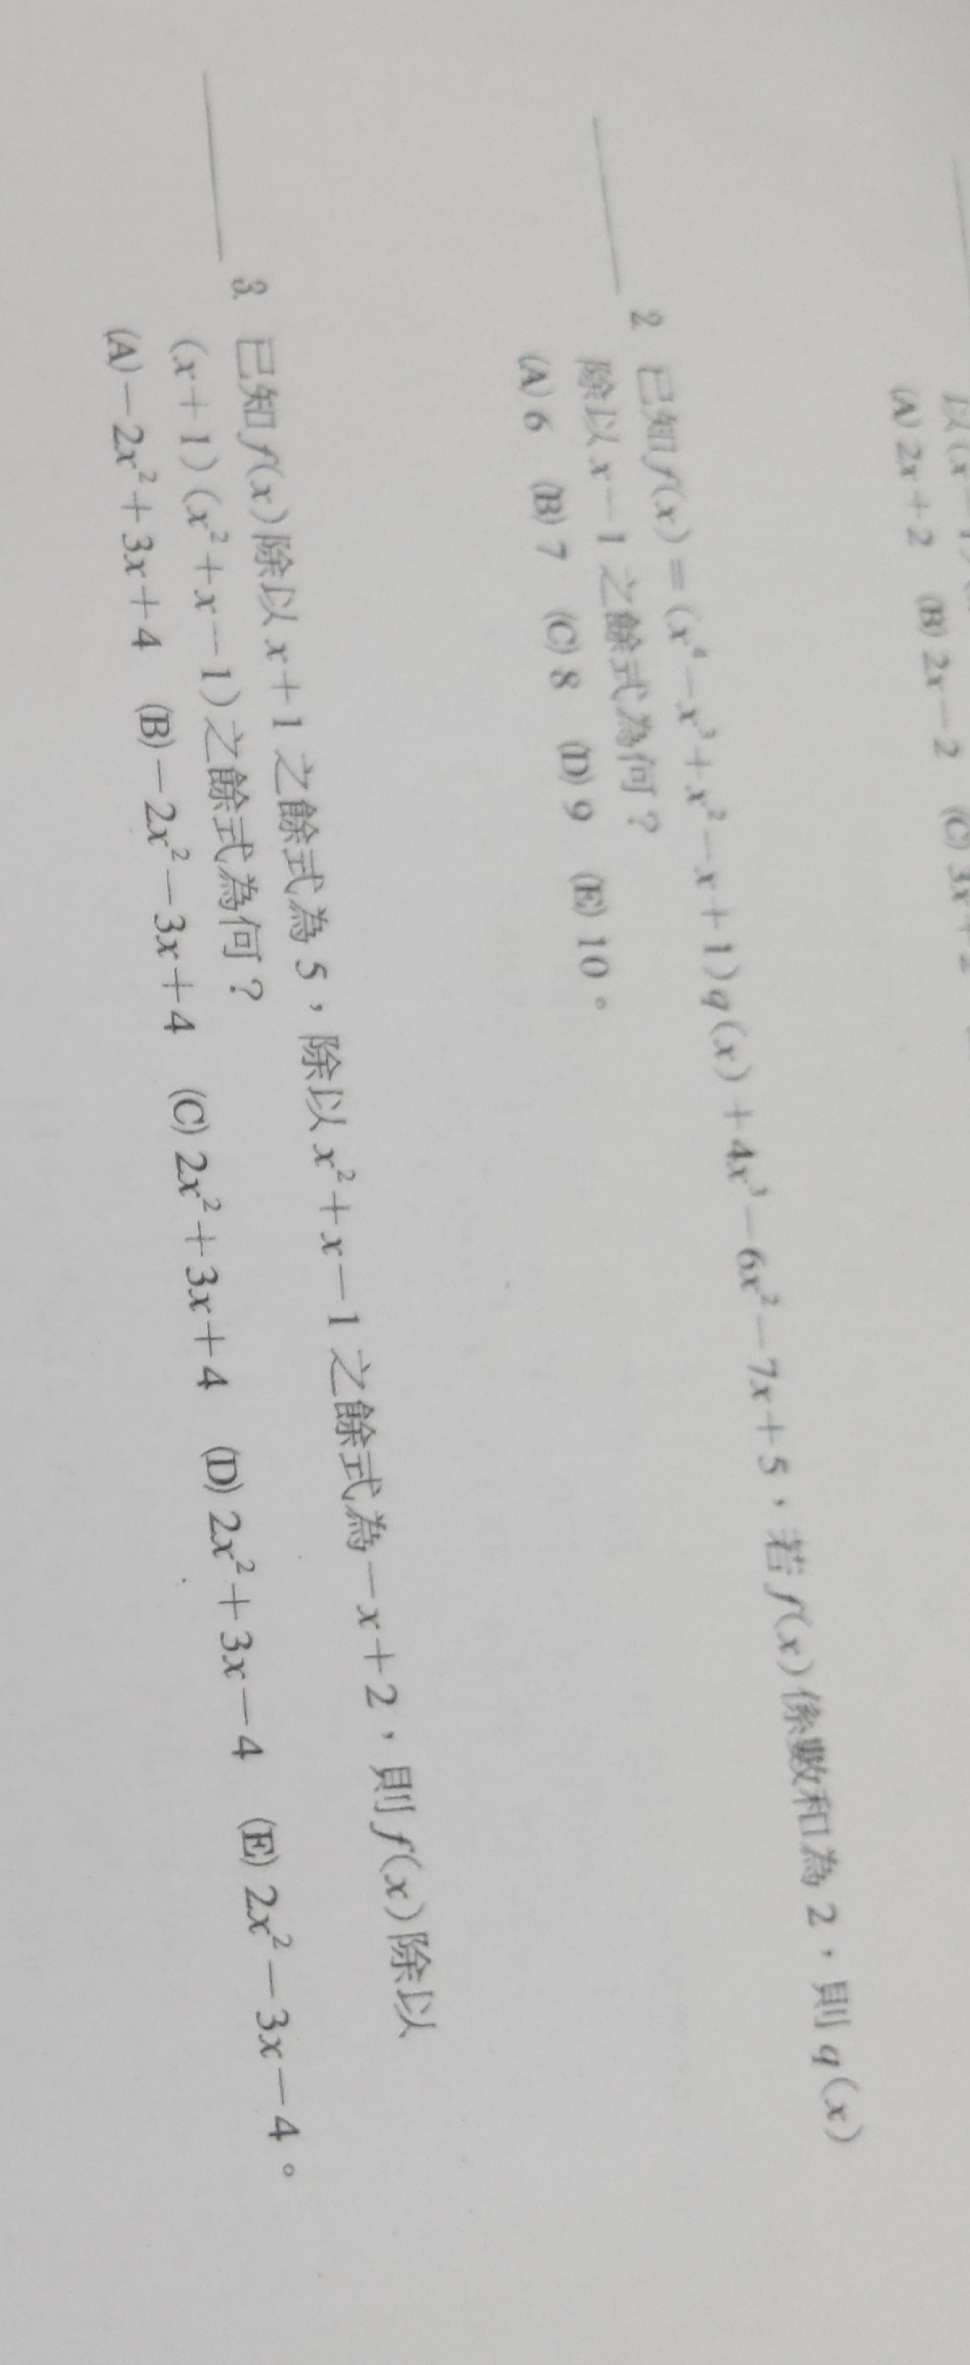 以(x－1)(
(A) 2x＋2　(B) 2x－2　(C) 3x＋2
2. 已知f(x)＝(x⁴－x³＋x²－x＋1)q(x)＋4x³－6x²－7x＋5，若f(x)係數和為2，則q(x)
除以x－1之餘式為何？
(A) 6　(B) 7　(C) 8　(D) 9　(E) 10。
3. 已知f(x)除以x＋1之餘式為5，除以x²＋x－1之餘式為－x＋2，則f(x)除以
(x＋1)(x²＋x－1)之餘式為何？
(A)－2x²＋3x＋4　(B)－2x²－3x＋4　(C) 2x²＋3x＋4　(D) 2x²＋3x－4　(E) 2x²－3x－4。